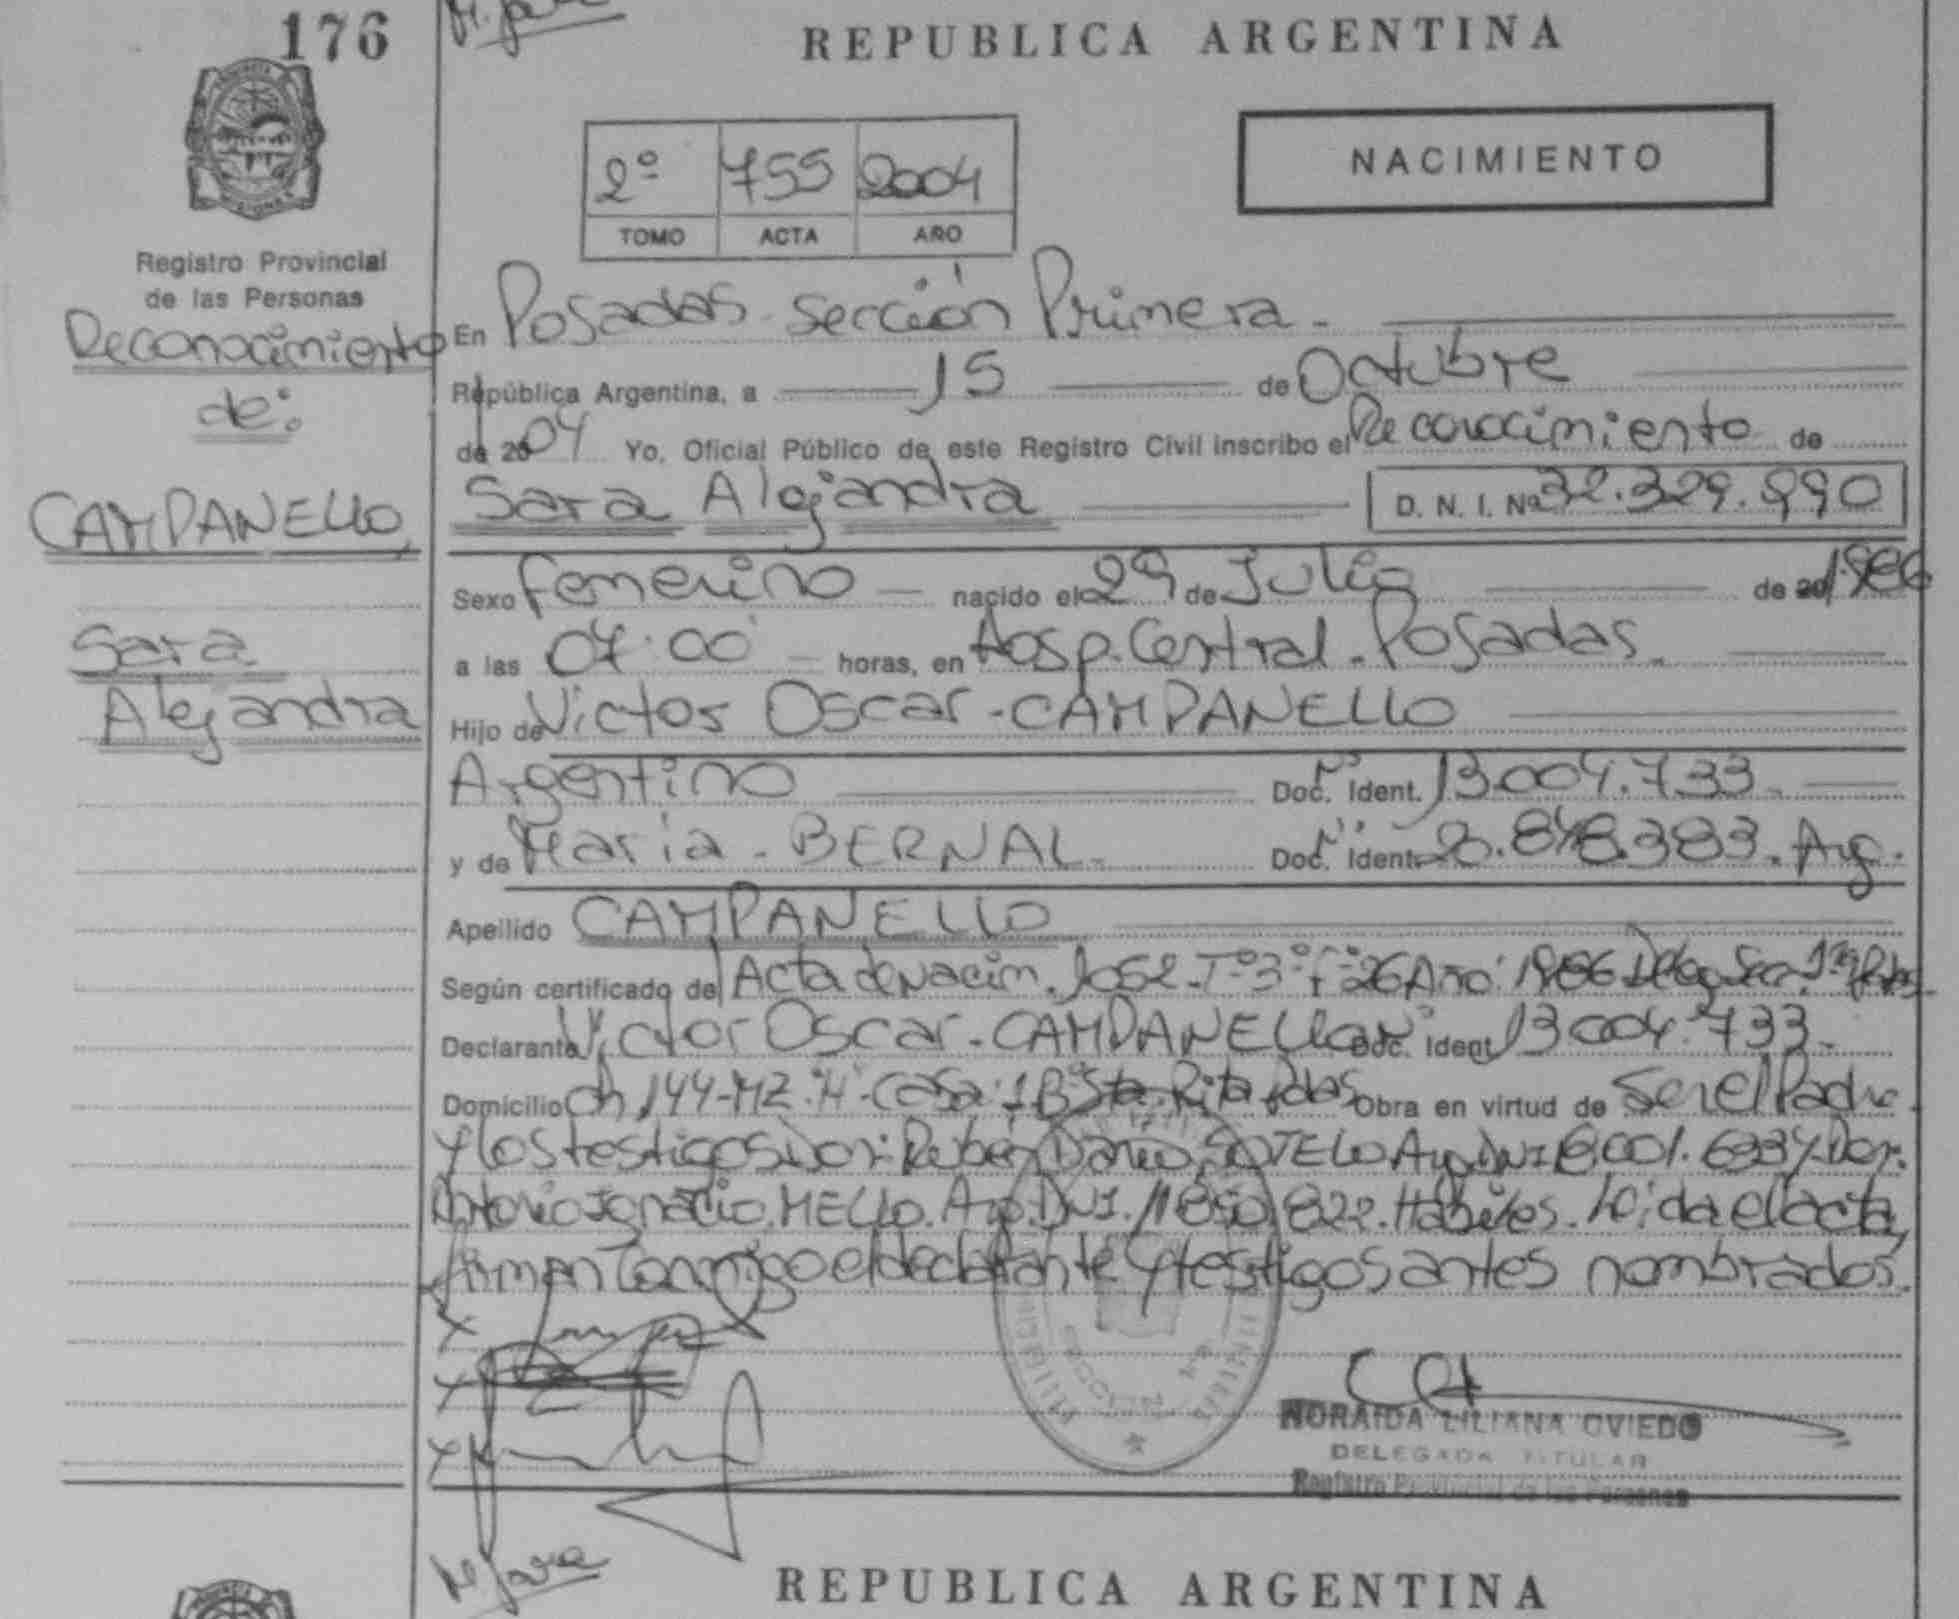 176
REPUBLICA ARGENTINA
NACIMIENTO
2º 755 2004
TOMO ACTA AÑO
Registro Provincial
de las Personas
Reconocimiento
de:
CAMPANELLO,
Sara
Alejandra
En Posadas. Sección Primera.
República Argentina, a 15 de Octubre
de 2004 Yo, Oficial Público de este Registro Civil inscribo el Reconocimiento de
Sara Alejandra D. N. I. Nº 32.329.990
Sexo femenino nacido el 29 de Julio de 1986
a las 07:00 horas, en Hosp. Central. Posadas.
Hijo de Victor Oscar - CAMPANELLO
Argentino Doc. Ident. Nº 13.004.733.
y de Maria - BERNAL. Doc. Ident. Nº Arg.
Apellido CAMPANELLO
Según certificado de Acta de Nacim. 1052 - Tº 3º Fº 26 Año 1986 Deleg. Sec. 1ª
Declarante Victor Oscar - CAMPANELLO Doc. Ident. Nº 13 004.733.
Domicilio Ch 144 - MZ. "H" - Casa: 1 Bº Sta. Rita Pdas Obra en virtud de Ser el Padre
y los testigos Don: Rubén Darío SOTELO Arg. DNI Don:
Antonio Ignacio. MELLO. Arg. DNI. 11850.822. Hábiles. Leida el acta,
firman conmigo el declarante y testigos antes nombrados.
NORAIDA LILIANA OVIEDO
DELEGADA TITULAR
Registro Provincial de las Personas
REPUBLICA ARGENTINA